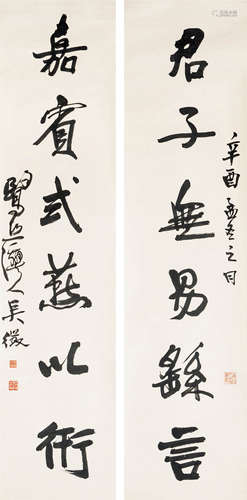 辛酉孟冬之月
君子無易繇言
嘉賓式燕以衎
鷺絲灣人吳徵